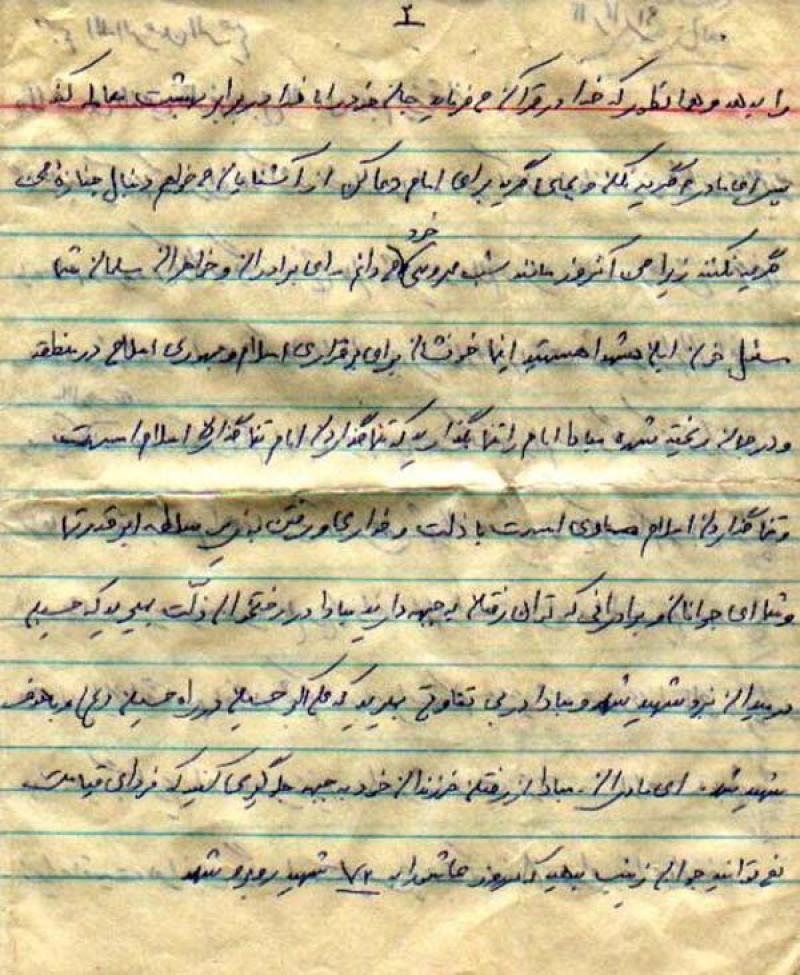 ۲
را بدهد و همانطور که خدا در قرآن می فرماید جان خود را با خدا در برابر بهشت معامله کند
پس ای مادرم گریه نکن و بجای گریه برای امام دعا کن از آشنایان می خواهم دنبال جنازه من
گریه نکنند زیرا من آنروز مانند شب عروسی خود می دانم برای برادران و خواهران مسلمان شما
مسئول خون این شهدا هستید اینها خونشان برای برقراری اسلام و جمهوری اسلامی در منطقه
و در جهان ریخته شده مبادا امام را تنها بگذارید که تنها گذاردن امام تنها گذاردن اسلام است
و تنها گذاردن اسلام مساوی است با ذلت و خواری و رفتن به زیر سلطه ابرقدرتها
و شما ای جوانان و برادرانی که توان رفتن به جبهه دارید مبادا در رختخواب ذلّت بمیرید که حسین
در میدان نبرد شهید شد و مبادا در بی تفاوتی بمیرید که علی اکبر حسین در راه حسین (ع) و با هدف
شهید شد. ای مادران مبادا از رفتن فرزندان خود به جبهه جلوگیری کنید که فردای قیامت
نمی توانید جواب زینب بدهید که روز عاشورا به ۷۲ شهید روبرو شد